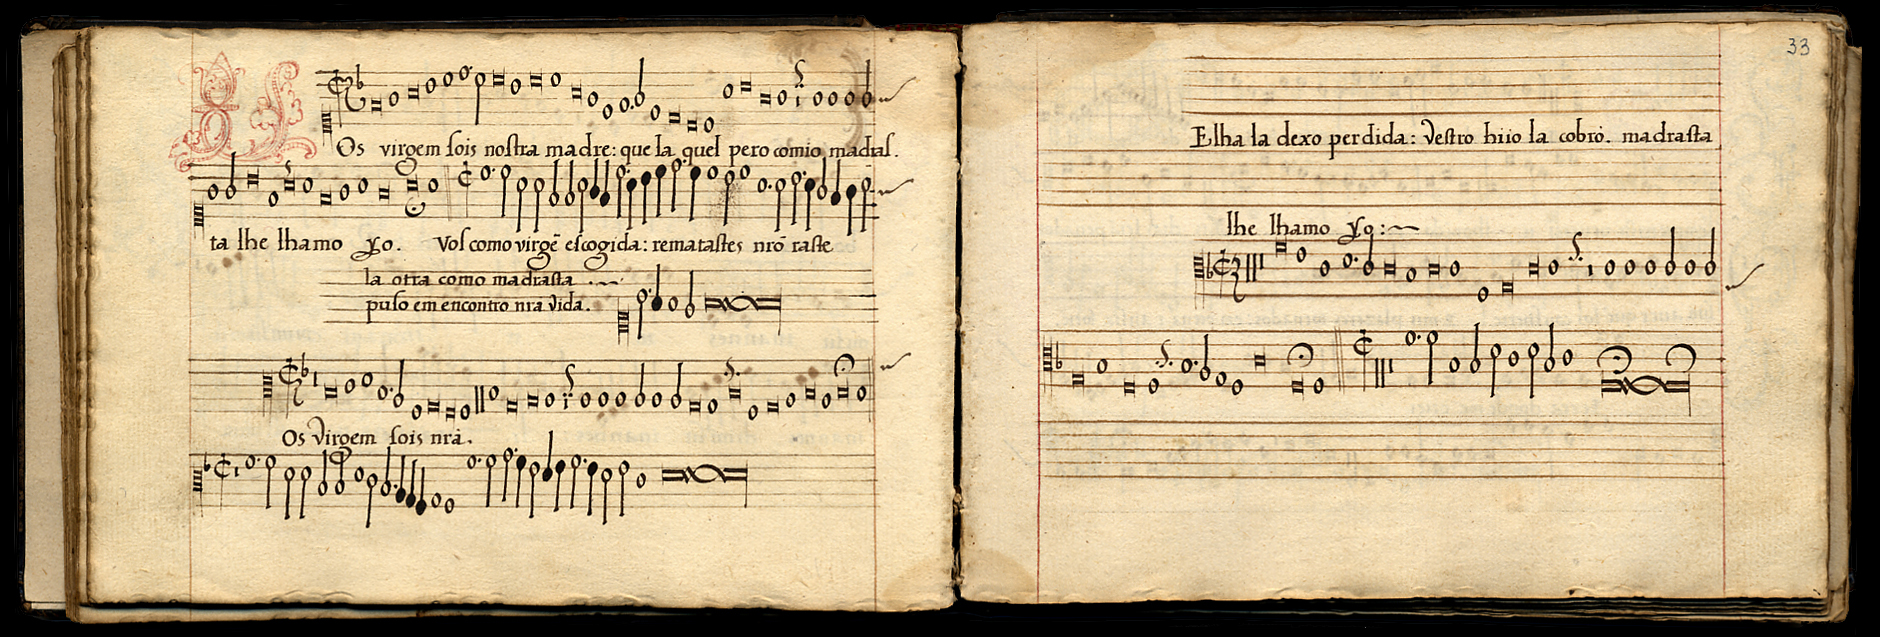 Vos virgem sois nostra madre: que la quel pero comio madras.
ta lhe lhamo yo. Vos como virgē escogida: rematastes nrō raste
la otra como madrasta
puso em encontro nra vida.
Os virgem sois nrā.
33
Elha la dexo perdida: vestro hiio la cobrò. madrasta
lhe lhamo yo: